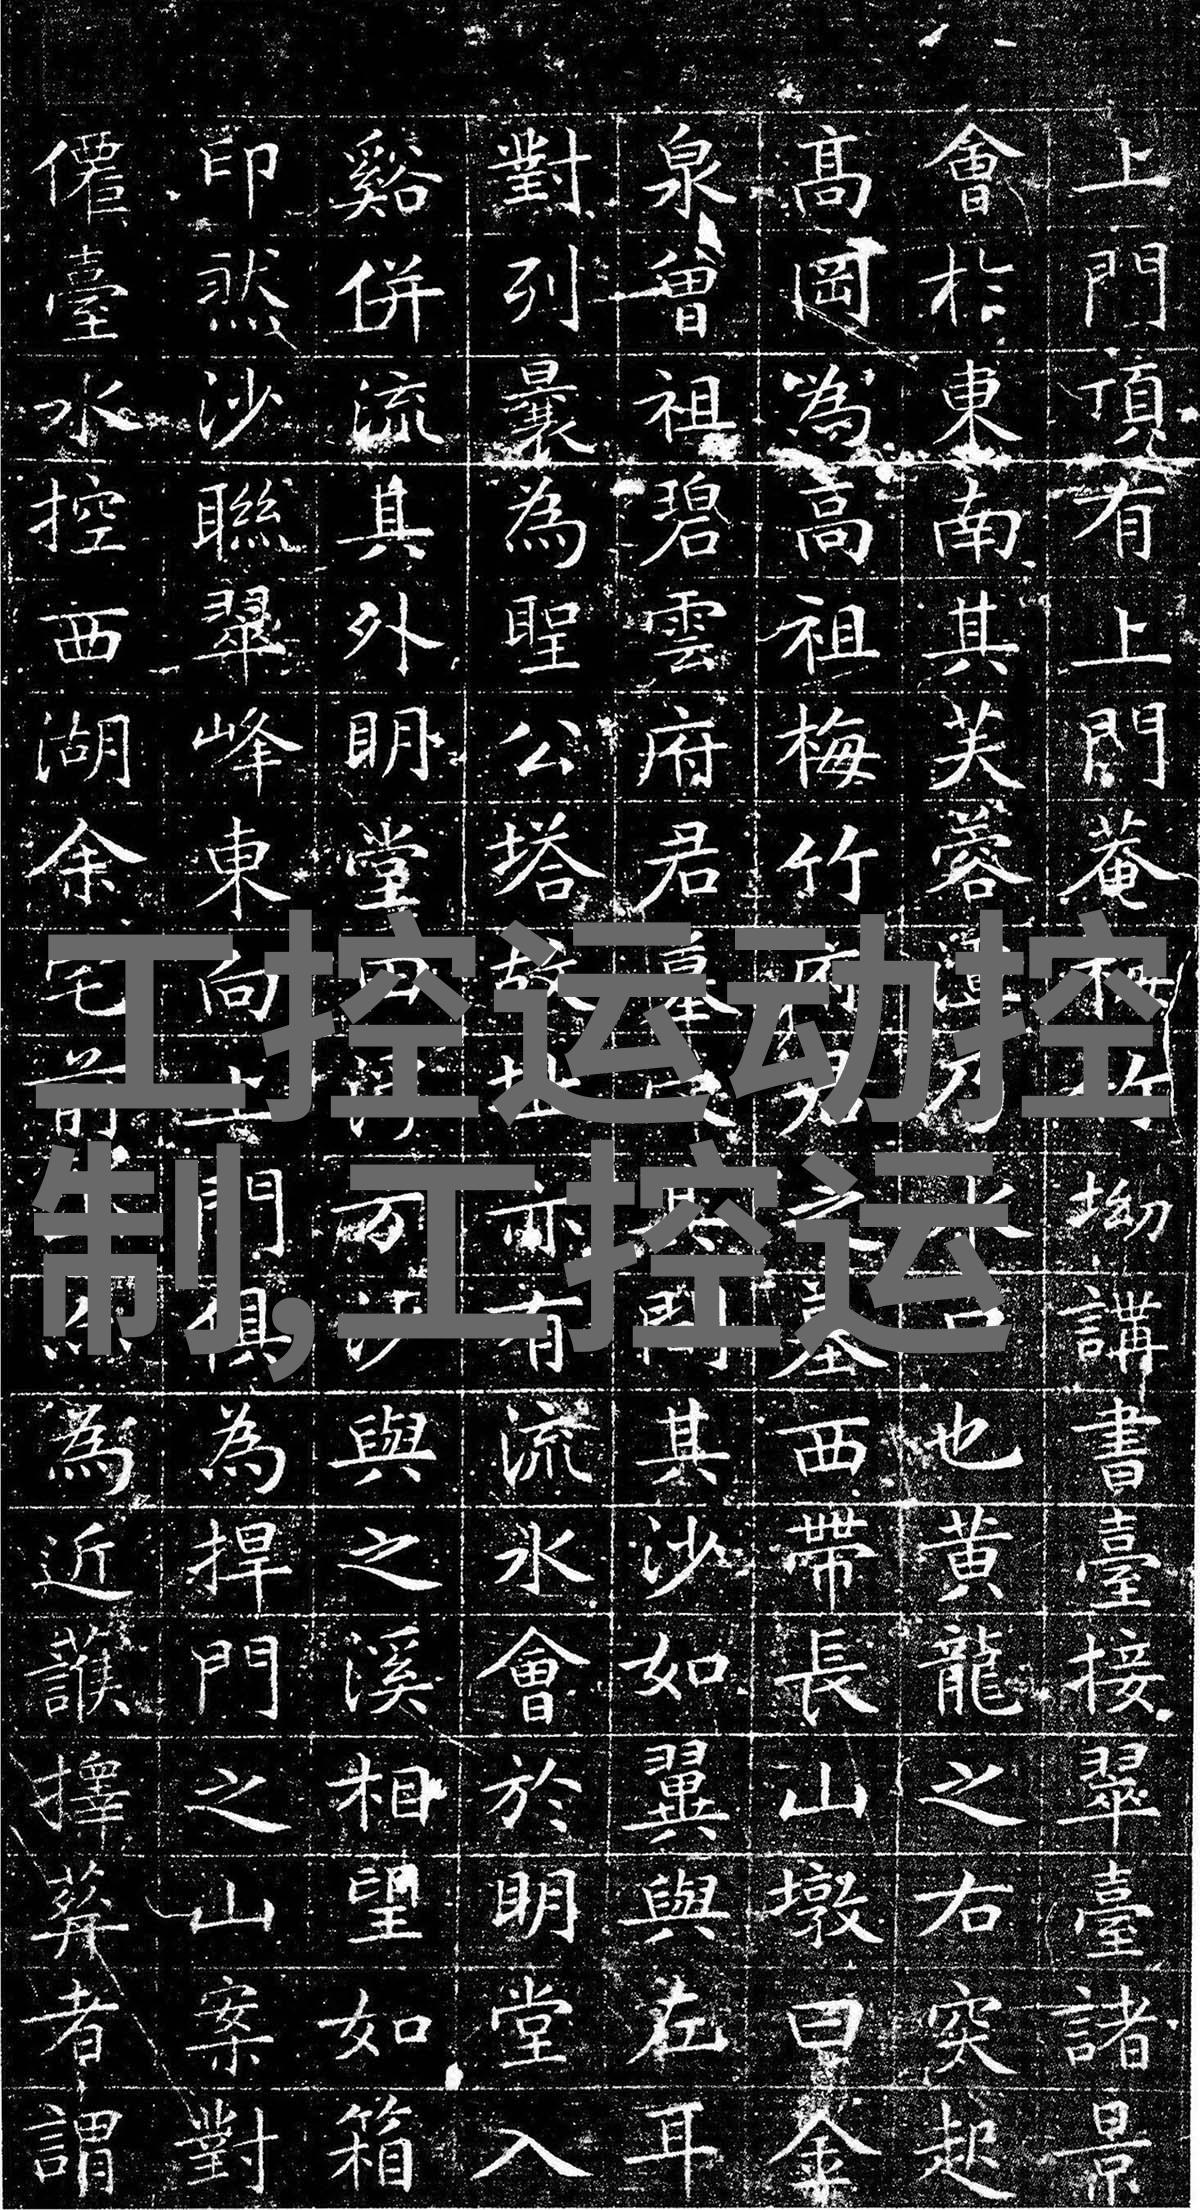 上門頂有上門菴梅竹坳講書臺接翠臺諸景
會於東南其芙蓉也黄龍之右突起
高岡為高祖梅竹府君之墓西帶長山墩曰金
泉曾祖碧雲府君墓其沙如翼與左耳
對列曩為聖公塔故址亦有流水會於明堂入
谿併流其外明堂四万沙與之溪相望如箱
印然沙聯翠峰東向上門俱為捍門之山案對
僊臺水控西湖余宅前為近護擇葬者謂
工控运动控
制,工控运